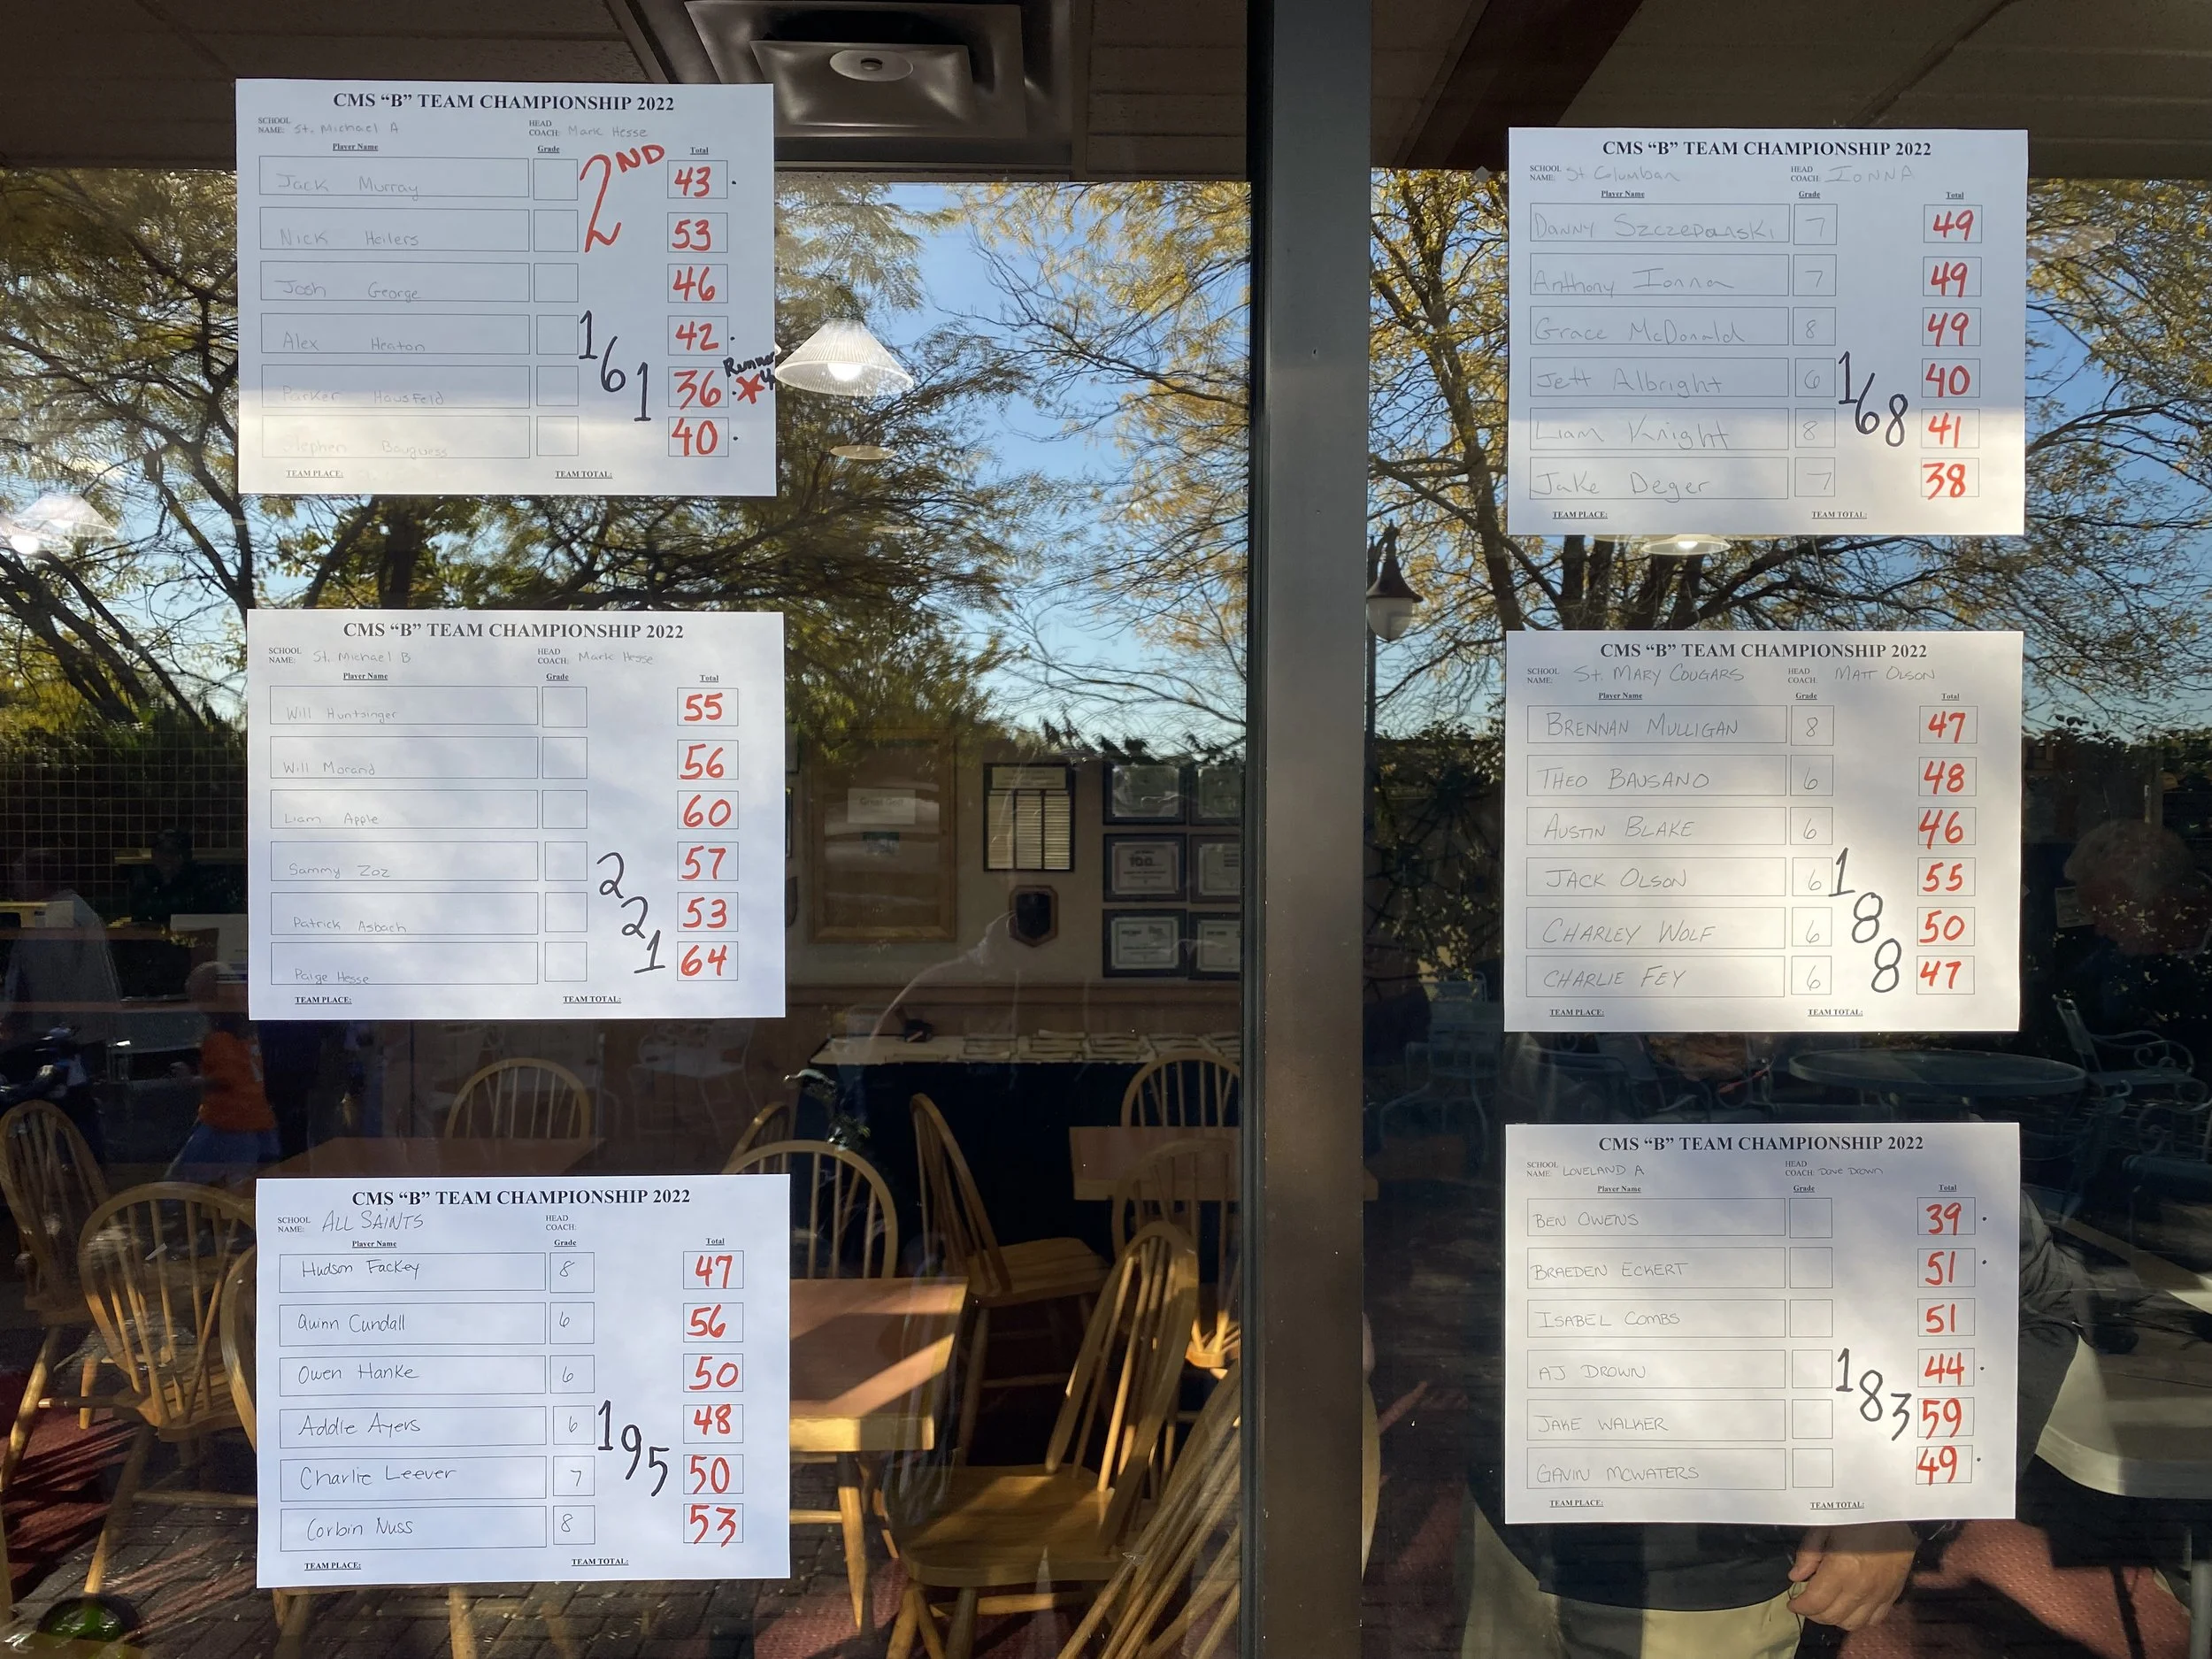 CMS “B” TEAM CHAMPIONSHIP 2022
SCHOOL NAME: St. Michael A HEAD COACH: Mark Hesse
Player Name Grade Total
2ND
Jack Murray 43
Nick Heilers 53
Josh George 46
Alex Heaton 42
Parker Hausfeld 36
Stephen Bauguess 40
161
TEAM PLACE: TEAM TOTAL:
CMS “B” TEAM CHAMPIONSHIP 2022
SCHOOL NAME: St. Michael B HEAD COACH: Mark Hesse
Player Name Grade Total
Will Huntsinger 55
Will Morand 56
Liam Apple 60
Sammy Zoz 57
Patrick Asbach 53
Paige Hesse 64
221
TEAM PLACE: TEAM TOTAL:
CMS “B” TEAM CHAMPIONSHIP 2022
SCHOOL NAME: ALL SAINTS HEAD COACH:
Player Name Grade Total
Hudson Fackey 8 47
Quinn Cundall 6 56
Owen Hanke 6 50
Addie Ayers 6 48
Charlie Leever 7 50
Corbin Nuss 8 53
195
TEAM PLACE: TEAM TOTAL:
CMS “B” TEAM CHAMPIONSHIP 2022
SCHOOL NAME: St Columban HEAD COACH: IONNA
Player Name Grade Total
Danny Szczepanski 7 49
Anthony Ionna 7 49
Grace McDonald 8 49
Jett Albright 6 40
Liam Knight 8 41
Jake Deger 7 38
168
TEAM PLACE: TEAM TOTAL:
CMS “B” TEAM CHAMPIONSHIP 2022
SCHOOL NAME: St. MARY COUGARS HEAD COACH: MATT OLSON
Player Name Grade Total
BRENNAN MULLIGAN 8 47
THEO BAUSANO 6 48
AUSTIN BLAKE 6 46
JACK OLSON 6 55
CHARLEY WOLF 6 50
CHARLIE FEY 6 47
188
TEAM PLACE: TEAM TOTAL:
CMS “B” TEAM CHAMPIONSHIP 2022
SCHOOL NAME: LOVELAND A HEAD COACH: Dave Drown
Player Name Grade Total
BEN OWENS 39
BRAEDEN ECKERT 51
ISABEL COMBS 51
AJ DROWN 44
JAKE WALKER 59
GAVIN MCWATERS 49
183
TEAM PLACE: TEAM TOTAL: